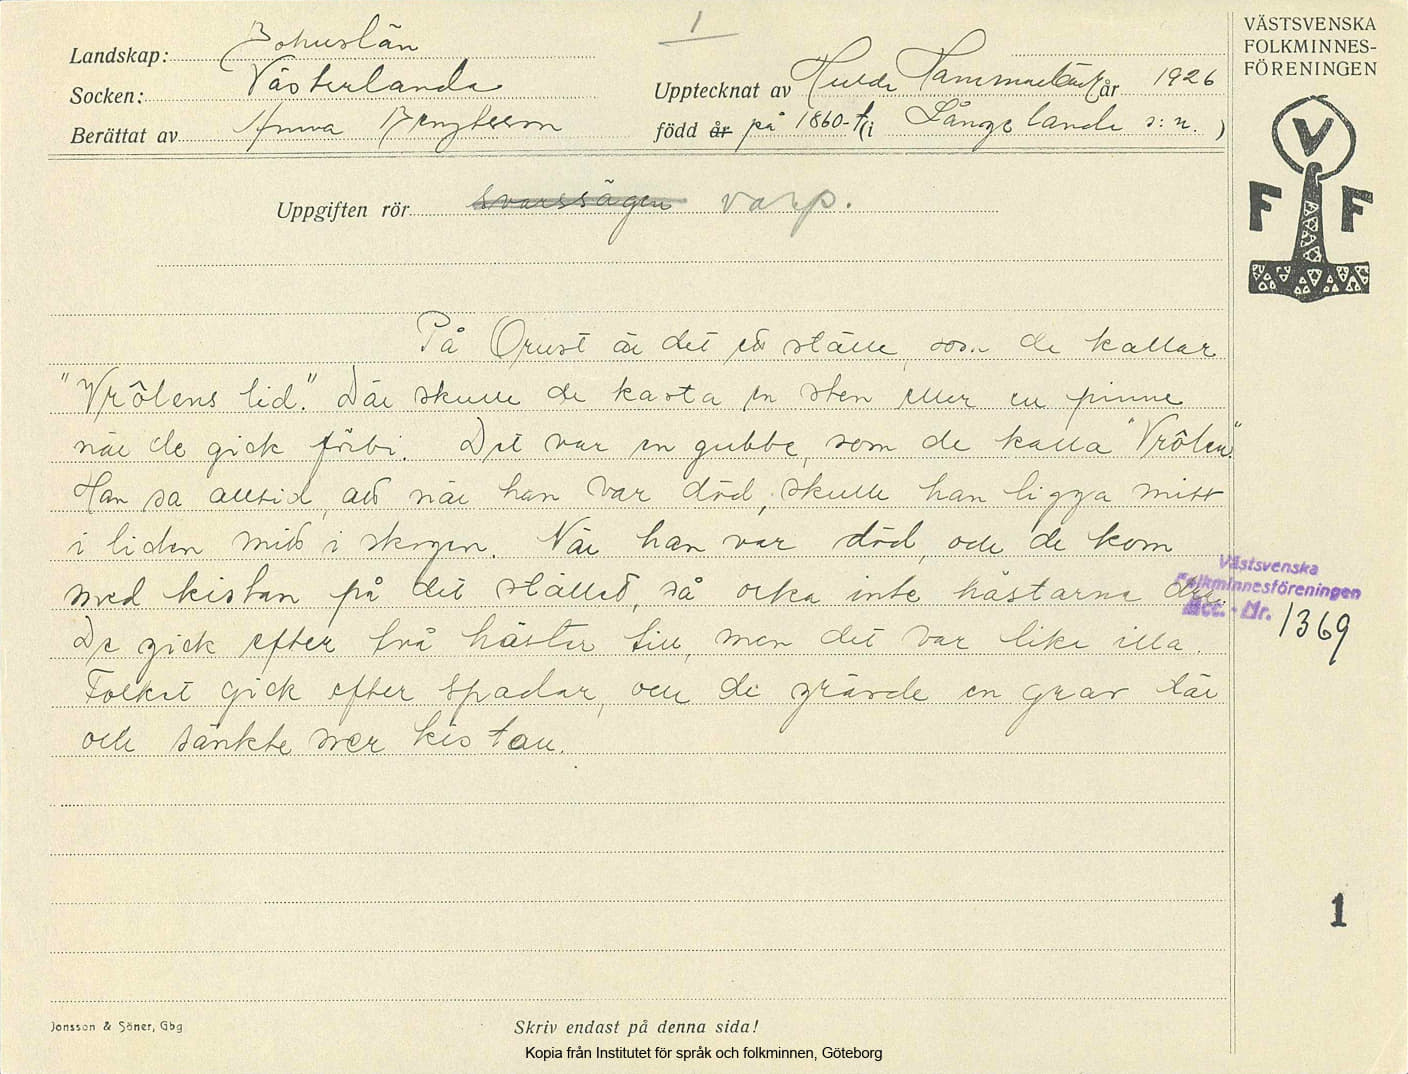 1
VÄSTSVENSKA
FOLKMINNES-
FÖRENINGEN
Landskap: Bohuslän
Socken: Västerlanda
Upptecknat av Hulda Hammarbäck år 1926
Berättat av Anna Bengtsson
född år på 1860-t. (i Långelanda s:n.)
Uppgiften rör svarssägen varp.
V
F F
På Orust är det ett ställe, som de kallar
"Vrôlens lid." Där skulle de kasta en sten eller en pinne
när de gick förbi. Det var en gubbe, som de kalla "Vrôlen".
Han sa alltid, att när han var död, skulle han ligga mitt
i liden mitt i skogen. När han var död, och de kom
med kistan på det stället, så orka inte hästarna dra.
De gick efter två hästar till, men det var lika illa.
Folket gick efter spadar, och de grävde en grav där
och sänkte ner kistan.
Västsvenska
Folkminnesföreningen
Acc. - Nr. 1369
1
Jonsson & Söner, Gbg
Skriv endast på denna sida!
Kopia från Institutet för språk och folkminnen, Göteborg